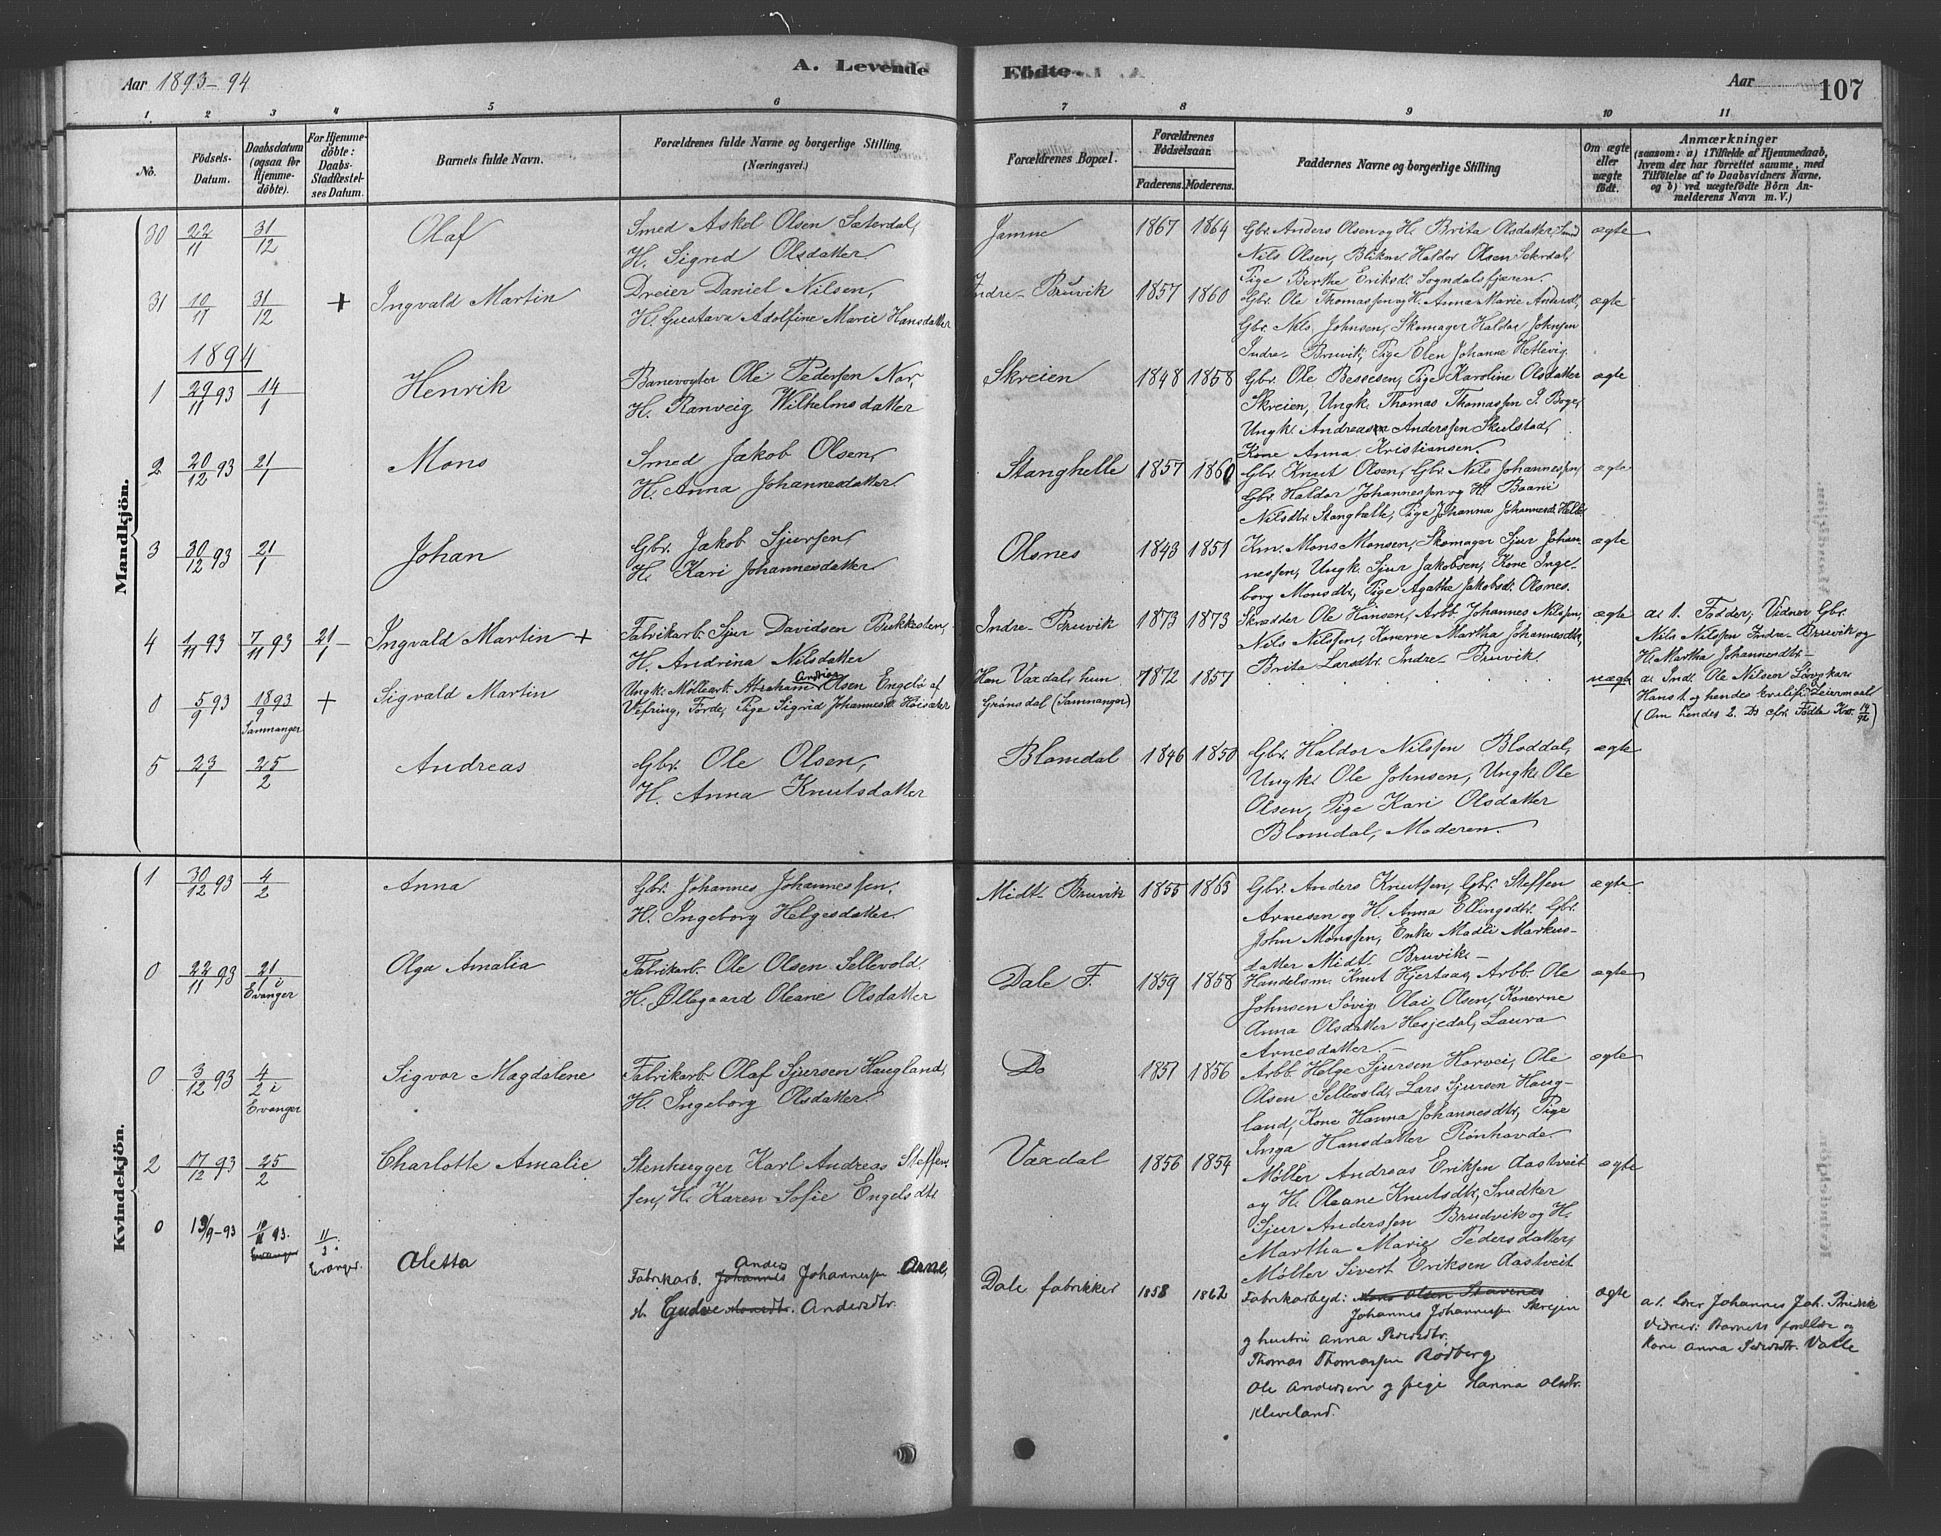 Aar 1893-94
A. Levende
Fødte.
Aar
107
1 2 3 4 5 6 7 8 9 10 11
No.
Födsels-
Datum.
Daabsdatum
(ogsaa for
Hjemme-
döbte).
For Hjemme-
döbte:
Daabs-
Stadfæstel-
ses Datum.
Barnets fulde Navn.
Forældrenes fulde Navne og borgerlige Stilling
(Næringsvei.)
Forældrenes Bopæl.
Forældrenes
Födselsaar.
Faderens. Moderens.
Faddernes Navne og borgerlige Stilling
Om ægte
eller
uægte
födt.
Anmærkninger
(saasom: a) i Tilfælde af Hjemmedaab,
hvem der har forrettet samme, med
Tilföielse af to Daabsvidners Navne,
og b) ved uægtefödte Börn An-
melderens Navn m. V.)
Mandkjön.
30 22/11 31/12 Olaf
Smed Askel Olsen Sæterdal,
H. Sigrid Olsdatter
Jamne 1867 1864
Gbr. Anders Olsen og H. Brita Olsdatter, Smed
Nils Olsen, Blikm. Haldor Olsen Sæterdal,
Pige Berthe Eriksd. Sogndalsfjæren.
ægte
31 10/11 31/12 + Ingvald Martin
Dreier Daniel Nilsen,
H. Gustava Adolfine Marie Hansdatter
Indre-Bruvik 1857 1860
Gbr. Ole Thomassen og H. Anna Marie Andersdt,
Gbr. Nils Johnsen, Skomager Haldor Johnsen
Indre-Bruvik, Pige Elen Johanne Hetlevig.
ægte
1894
1 29/11 93 14/1 Henrik
Banevogter Ole Pedersen Nor,
H. Ranveig Wilhelmsdatter
Skreien 1848 1858
Gbr. Ole Bessesen, Pige Karoline Olsdatter
Skreien, Ungk. Thomas Thomassen I. Boge,
Ungk. Andreas Anderssen Skulstad,
Kone Anna Kristiansen.
ægte
2 20/12 93 21/1 Mons
Smed Jakob Olsen,
H. Anna Johannesdatter
Stanghelle 1857 1860
Gbr. Knut Olsen, Gbr. Nils Johannessen,
Gbr. Haldor Johannessen og H. Baani
Nilsdtr. Stanghelle, Pige Johanna Johannesd. Helle
ægte
3 30/12 93 21/1 Johan
Gbr. Jakob Sjursen,
H. Kari Johannesdatter
Olsnes 1843 1851
Km. Mons Monsen, Skomager Sjur Johan-
nessen, Ungk. Sjur Jakobsen, Kone Inge-
borg Monsdtr, Pige Agathe Jakobsdt. Olsnes.
ægte
4 1/11 93 7/11 93 21/1 Ingvald Martin +
Fabrikarb. Sjur Davidsen Bukkesten,
H. Andrina Nilsdatter
Indre-Bruvik 1873 1873
Skrædder Ole Hansen, Arbb. Johannes Nilssen,
Nils Nilssen, Konerne Martha Johannesdtr,
Brita Larsdtr. Indre-Bruvik.
ægte
a. 1. Fader; Vidner Gbr.
Nils Nilssen Indre-Bruvik og
H. Martha Johannesdtr.
0 5/9 93 18/9 93 Samnanger + Sigvald Martin
Ungk. Møllearb. Abraham Andreas Olsen Engebø af
Vefring, Førde, Pige Sigrid Johannesd. Høisæter
Han Vaxdal, hun
Grønsdal (Samnanger) 1872 1857
uægte
a. Indb. Ole Nilsen
Hans 1. og hendes Leiermaal
(Om hendes 2. Do cfr. Fødte Kv. 14/92)
5 23/1 25/2 Andreas
Gbr. Ole Olsen,
H. Anna Knutsdatter
Blomdal 1846 1850
Gbr. Haldor Nilssen Bloddal,
Ungk. Ole Johnsen, Ungk. Ole
Olsen, Pige Kari Olsdatter
Blomdal, Moderen.
ægte
Kvindekjön.
1 30/12 93 4/2 Anna
Gbr. Johannes Johannessen,
H. Ingeborg Helgesdatter
Midt-Bruvik 1855 1863
Gbr. Anders Knutsen, Gbr. Steffen
Arnesen og H. Anna Ellingsdtr. Gbr.
John Monssen, Enke Madli Markus-
datter Midt-Bruvik.
ægte
0 22/11 93 21/1 i Evanger Olga Amalia
Fabrikarb. Ole Olsen Sellevold.
H. Øllegaard Oleane Olsdatter
Dale F. 1859 1858
Handelsm. Knut Hjertaas, Arbb. Ole
Johnsen Søvig, Olai Olsen, Konerne
Anna Olsdatter Hesjedal, Laura
Arnesdatter.
ægte
0 3/12 93 4/2 i Evanger Sigvor Magdalene
Fabrikarb. Olaf Sjursen Haugland,
H. Ingeborg Olsdatter
Do 1857 1856
Arbb. Helge Sjursen Horvei, Ole
Olsen Sellevold, Lars Sjursen Haug-
land, Kone Hanna Johannesdtr, Pige
Inga Hansdatter Rønhovde.
ægte
2 17/12 93 25/2 Charlotte Amalie
Stenhugger Karl Andreas Steffen-
sen, H. Karen Sofie Engelsdtr
Vaxdal 1856 1854
Møller Andreas Eriksen Aastveit
og H. Oleane Knutsdtr, Snedker
Sjur Anderssen Brudvik og H.
Martha Marie Pedersdatter,
Møller Sivert Eriksen Aastveit
ægte
0 19/9-93 93. Evanger 11/3 i Evanger. Aletta
Fabrikarb. Johannes Anders Johannessen Arne,
H. Gudve Monsdtr. Andersdtr.
Dale fabrikker 1858 1862
Fabrikarbejd: Mons Olsen Stavenes
Johannes Johannessen Skrejen
og hustru Anna Pedersdtr.
Thomas Thomassen Rødberg
Ole Andersen og pige Hanna Olsdtr.
Kleveland.
ægte
a. 1. Lærer Johannes Joh. Bruvik
Vidner: Barnets forældre og
Kone Anna Pedersdtr. Dalle